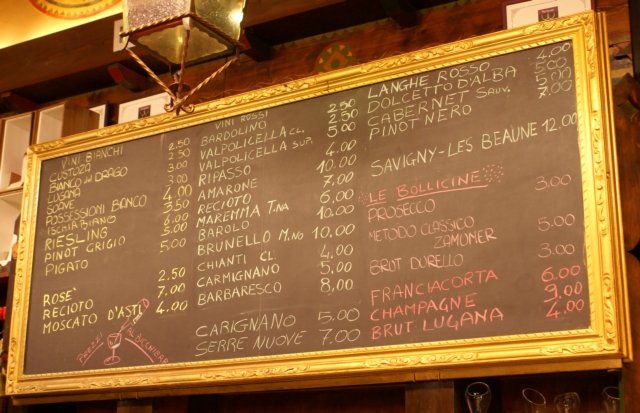 VINI BIANCHI
CUSTOZA 2.50
BIANCO del DRAGO 3.00
LUGANA 3.00
SOAVE 3.00
POSSESSIONI BIANCO 4.00
ISCHIA BIANCO 3.50
RIESLING 6.00
PINOT GRIGIO 5.00
PIGATO 5.00
ROSE' 2.50
RECIOTO 7.00
MOSCATO D'ASTI 4.00
PREZZI AL BICCHIERE
VINI ROSSI
BARDOLINO 2.50
VALPOLICELLA CL. 2.50
VALPOLICELLA SUP. 5.00
RIPASSO 4.00
AMARONE 10.00
RECIOTO 7.00
MAREMMA T.NA 6.00
BAROLO 10.00
BRUNELLO M.NO 10.00
CHIANTI CL. 4.00
CARMIGNANO 5.00
BARBARESCO 8.00
CARIGNANO 5.00
SERRE NUOVE 7.00
LANGHE ROSSO 4.00
DOLCETTO D'ALBA 5.00
CABERNET SAUV. 5.00
PINOT NERO 7.00
SAVIGNY-LES BEAUNE 12.00
LE BOLLICINE
PROSECCO 3.00
METODO CLASSICO
ZAMUNER 5.00
BRUT DURELLO 3.00
FRANCIACORTA 6.00
CHAMPAGNE 9.00
BRUT LUGANA 4.00